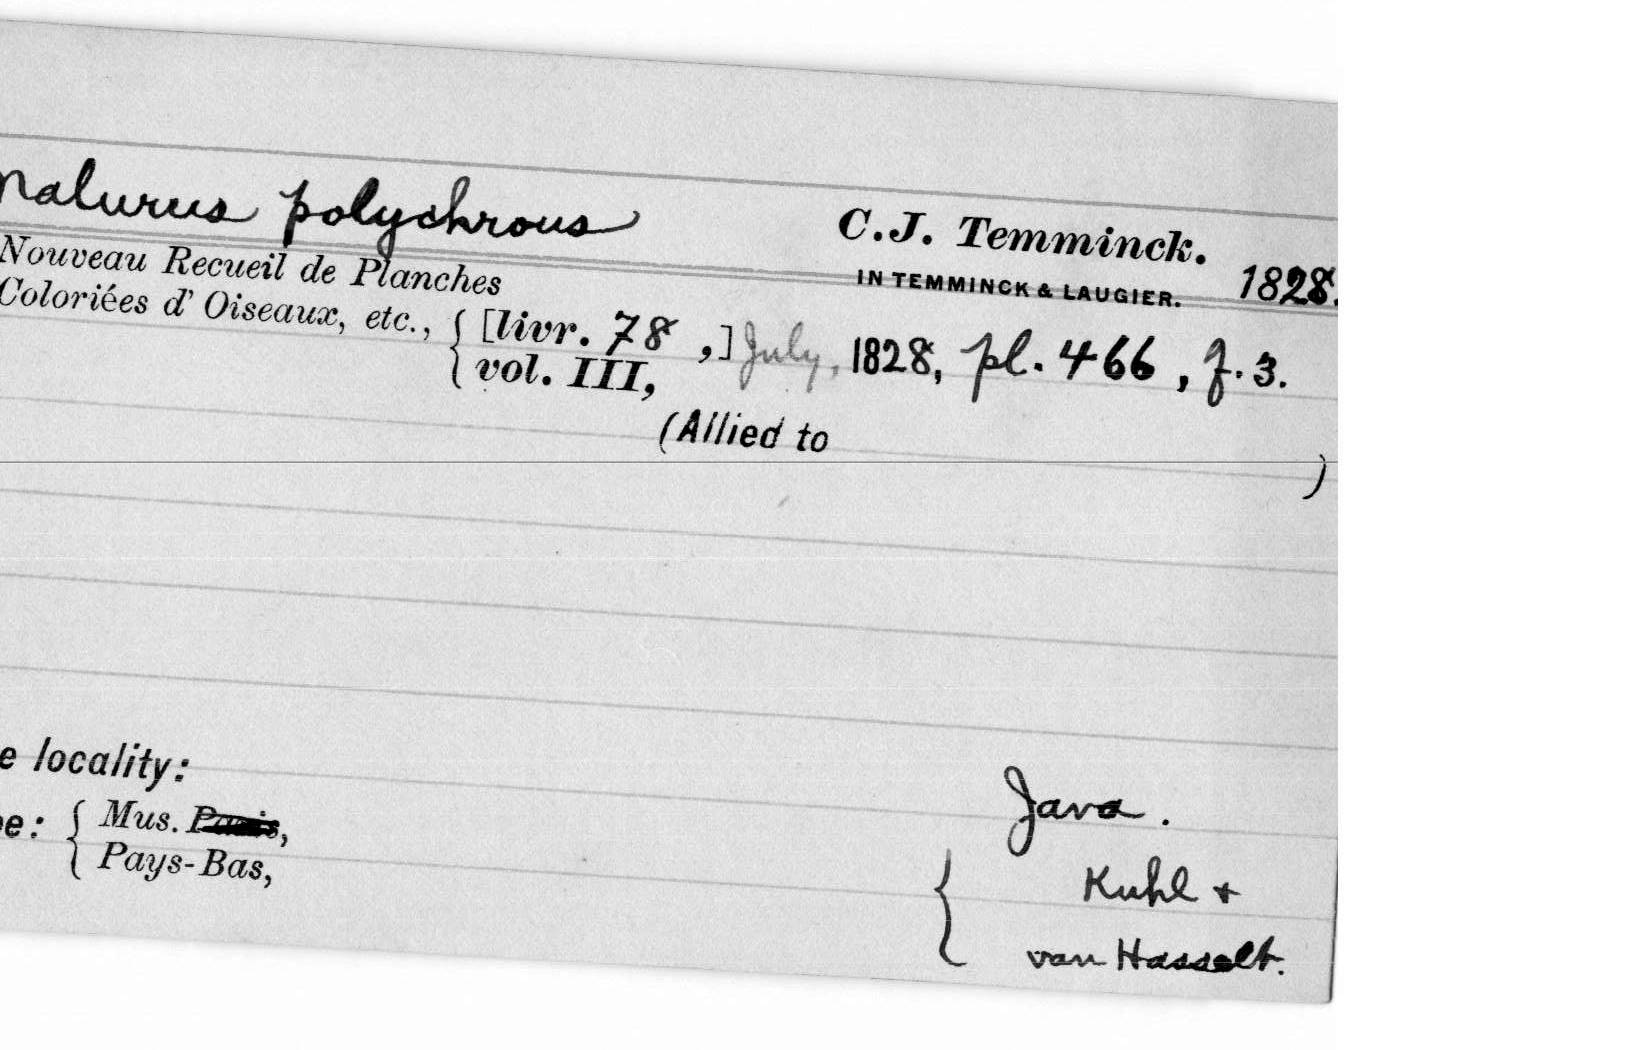 malurus polychrous
C.J. Temminck.
IN TEMMINCK & LAUGIER. 1828.
Nouveau Recueil de Planches
Coloriées d' Oiseaux, etc., { [livr. 78 ,] July, 1828, pl. 466, f. 3.
vol. III,
(Allied to
)
e locality: Java.
e: { Mus. Paris, { Kuhl +
Pays-Bas, van Hasselt.